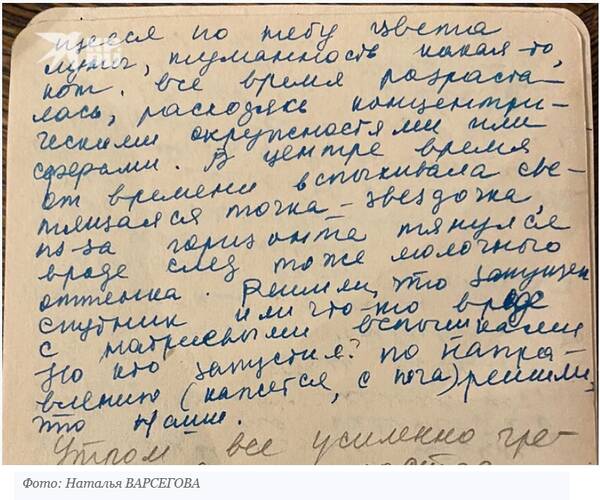 щееся по небу цвета
луны, туманность какая-то,
кот. все время разраста-
лась, расходясь концентри-
ческими окружностями или
сферами. В центре время
от времени вспыхивала све-
тящаяся точка – звездочка,
из-за горизонта тянулся
вроде след тоже молочного
оттенка. Решили, что запущен
спутник или что-то вроде
с натриевыми вспышками
Но кто запустил? по напра-
влению (кажется, с юга) решили,
что наши.
Утром все усиленно гре-
Фото: Наталья ВАРСЕГОВА